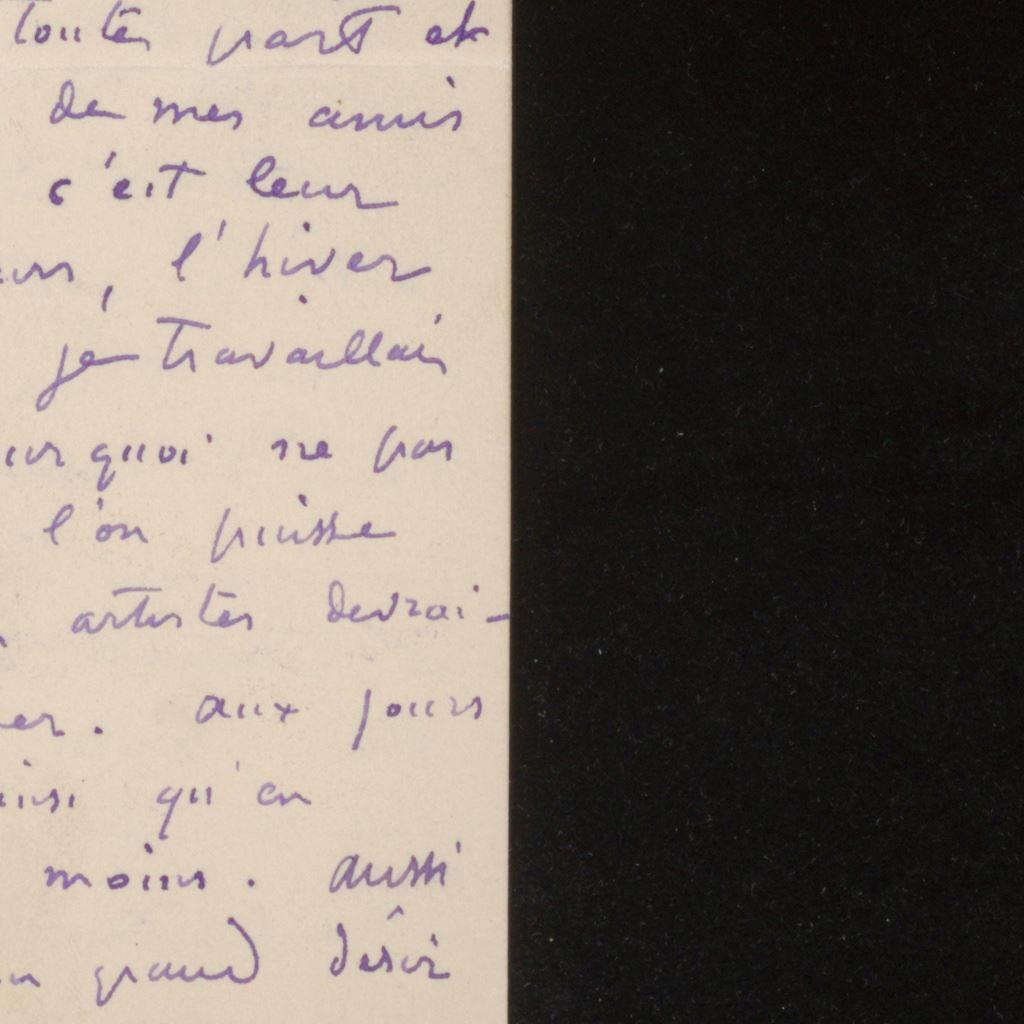 toutes part et
de mes amis
c'est leur
, l'hiver
je travaillais
ne pas
l'on puisse
artistes devrai-
. aux jours
qu'en
moins. aussi
grand désir